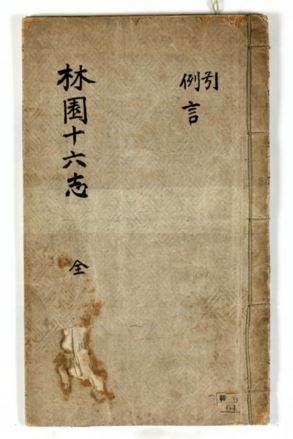 引
例言
林園十六志 全